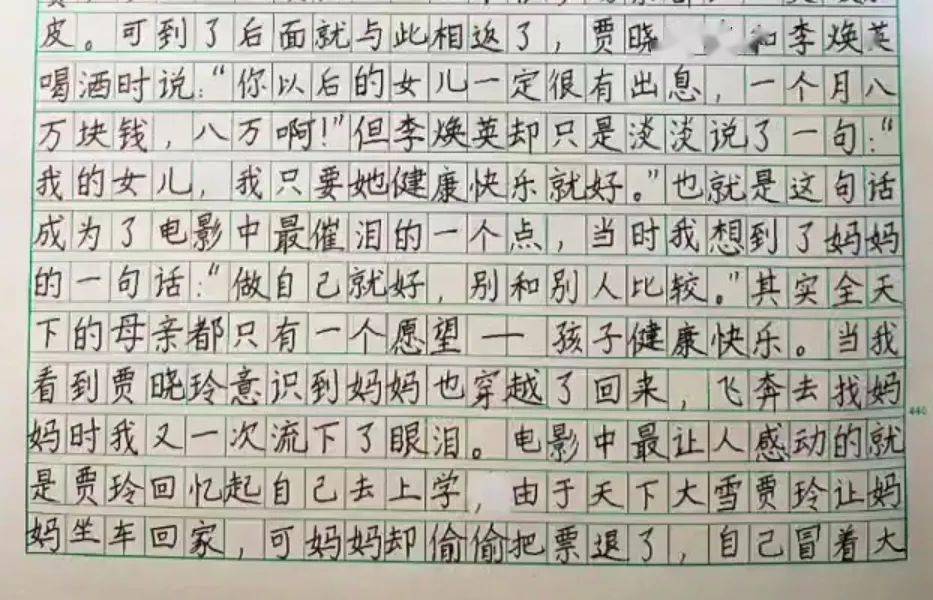 皮。可到了后面就与此相返了，贾晓 和李焕英
喝酒时说：“你以后的女儿一定很有出息，一个月八
万块钱，八万啊！”但李焕英却只是淡淡说了一句：“
我的女儿，我只要她健康快乐就好。”也就是这句话
成为了电影中最催泪的一个点，当时我想到了妈妈
的一句话：“做自己就好，别和别人比较。”其实全天
下的母亲都只有一个愿望——孩子健康快乐。当我
看到贾晓玲意识到妈妈也穿越了回来，飞奔去找妈
妈时我又一次流下了眼泪。电影中最让人感动的就
440
是贾玲回忆起自己去上学， 由于天下大雪贾玲让妈
妈坐车回家，可妈妈却偷偷把票退了，自己冒着大